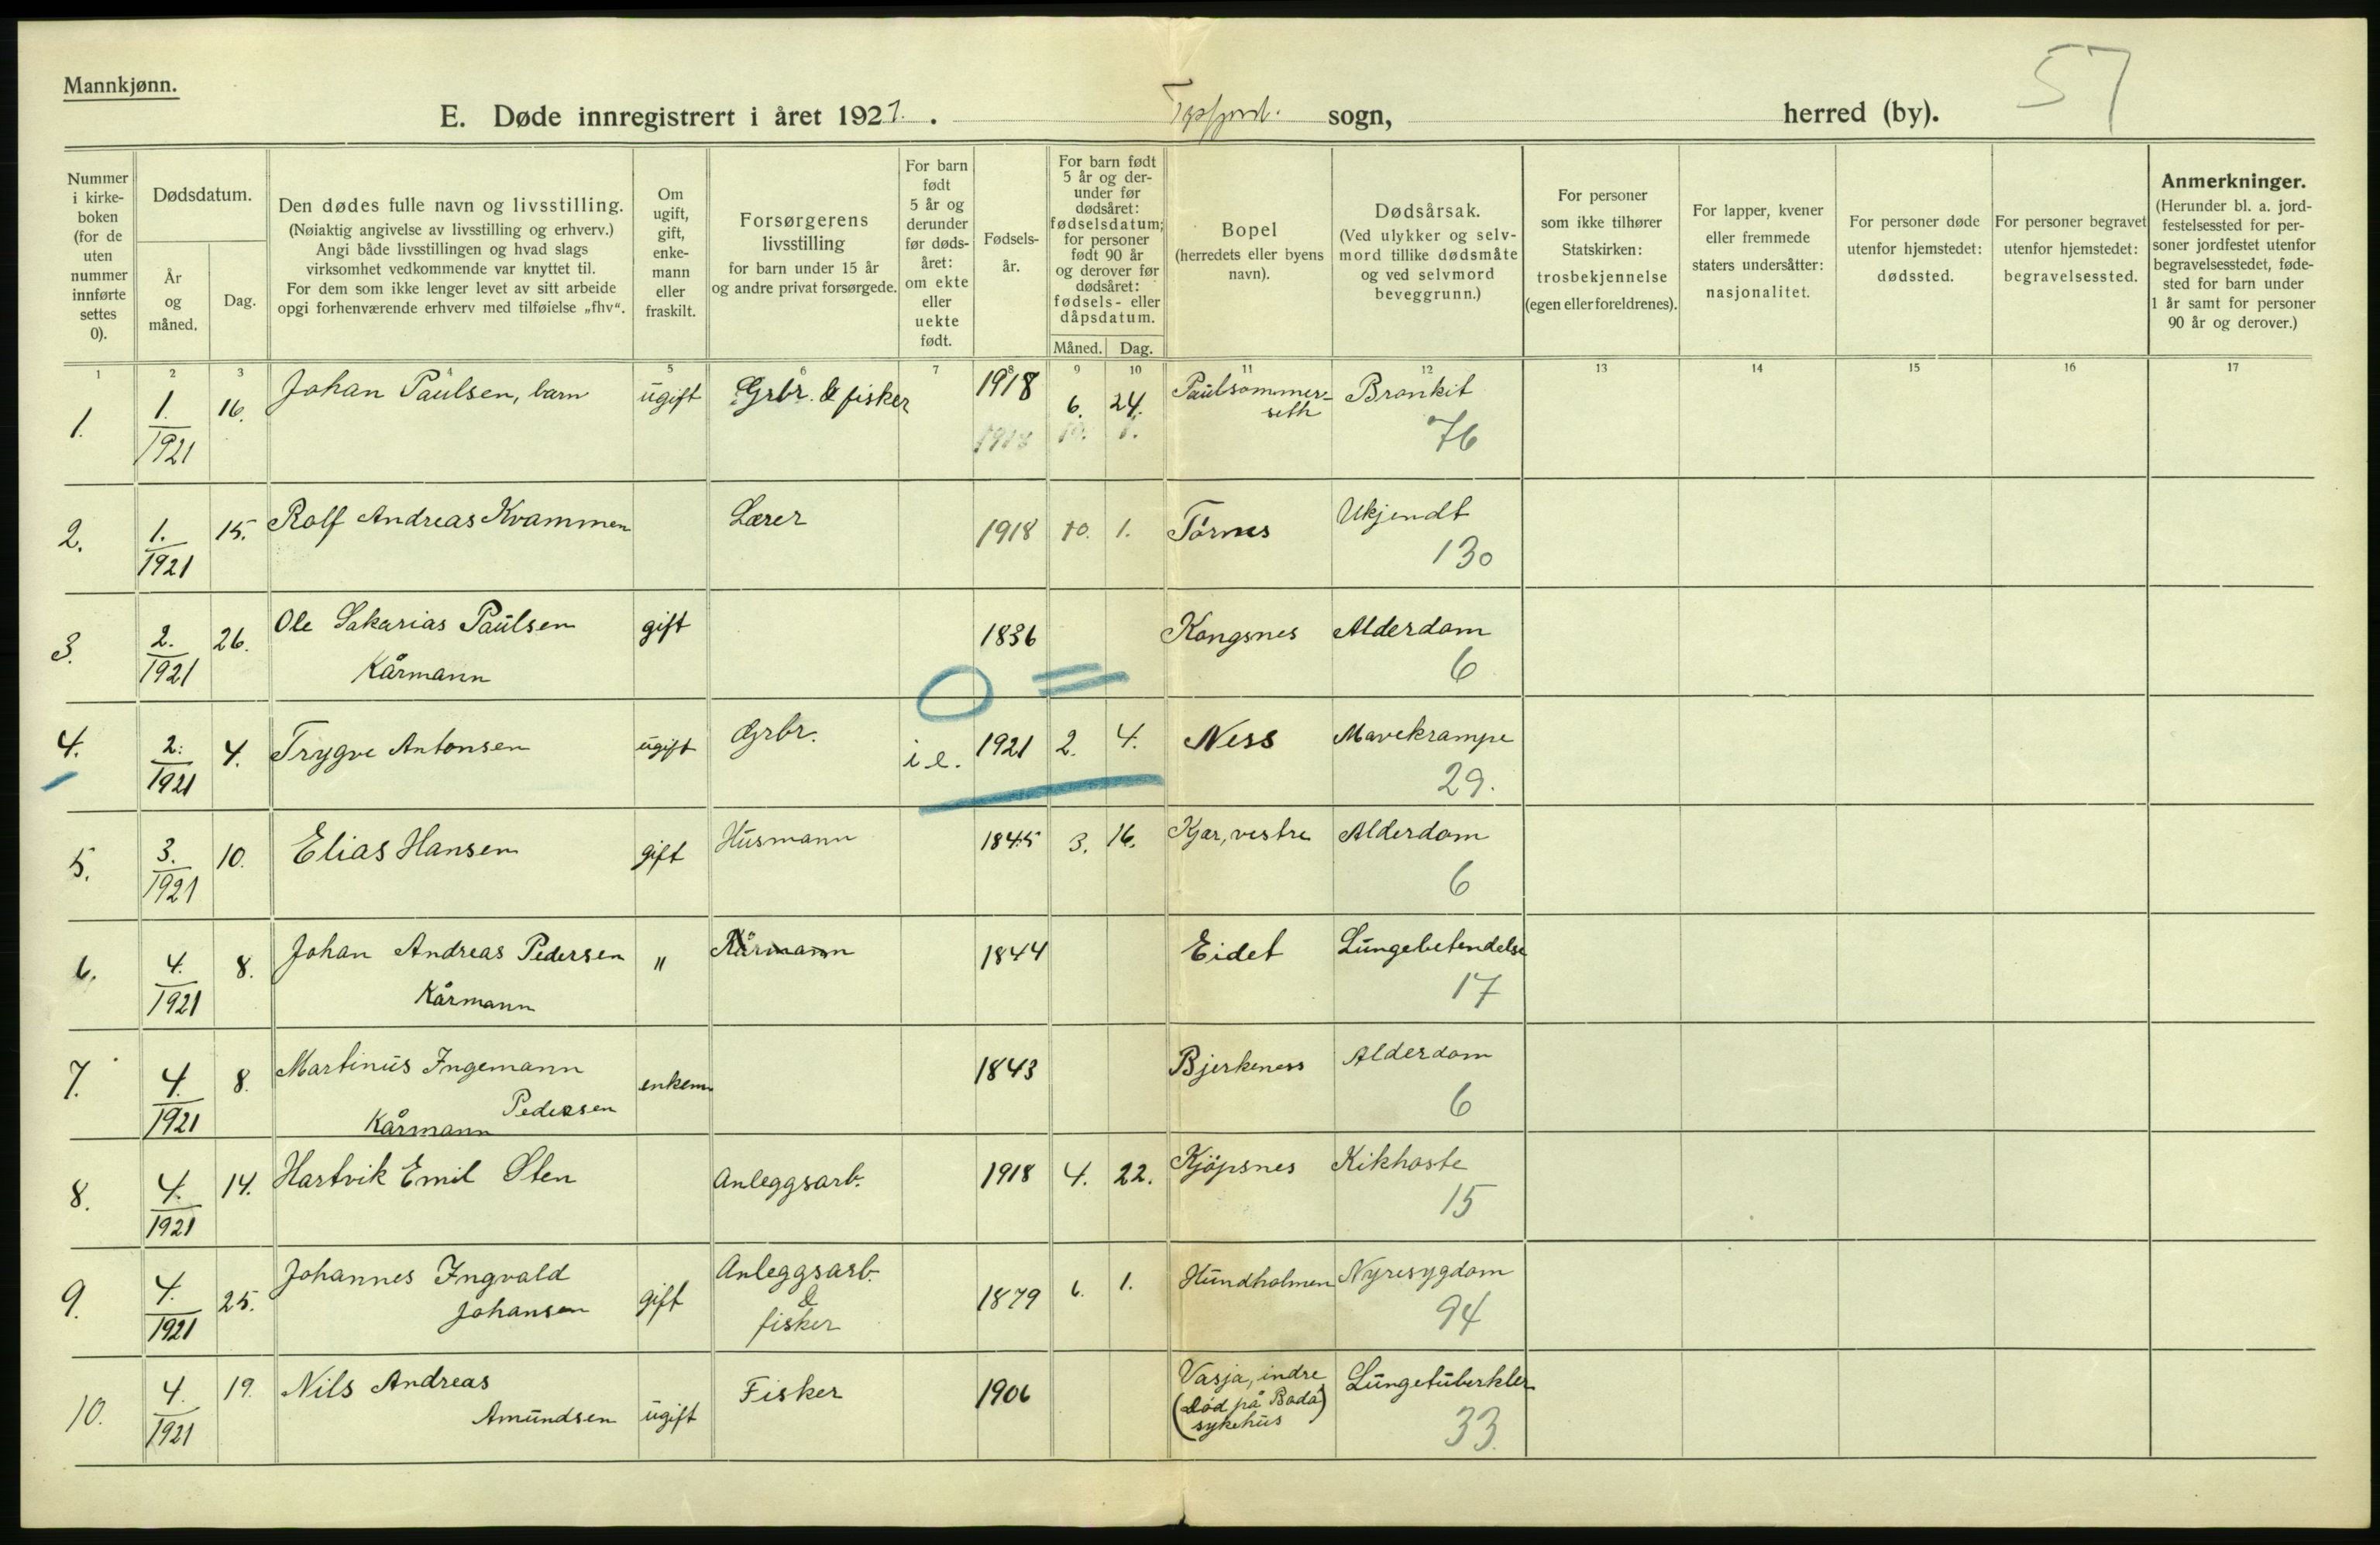 Mannkjønn.
57
E. Døde innregistrert i året 1921. sogn, herred (by).
Nummer i kirkeboken (for de uten nummer innførte settes 0).
Dødsdatum.
År og måned.
Dag.
Den dødes fulle navn og livsstilling.
(Nøiaktig angivelse av livsstilling og erhverv.)
Angi både livsstillingen og hvad slags
virksomhet vedkommende var knyttet til.
For dem som ikke lenger levet av sitt arbeide
opgi forhenværende erhverv med tilføielse „fhv“.
Om ugift, gift, enkemann eller fraskilt.
Forsørgerens
livsstilling
for barn under 15 år
og andre privat forsørgede.
For barn født 5 år og derunder før dødsåret: om ekte eller uekte født.
Fødselsår.
For barn født 5 år og derunder før dødsåret: fødselsdatum; for personer født 90 år og derover før dødsåret: fødsels- eller dåpsdatum.
Måned. Dag.
Bopel
(herredets eller byens navn).
Dødsårsak.
(Ved ulykker og selvmord tillike dødsmåte og ved selvmord beveggrunn.)
For personer som ikke tilhører Statskirken:
trosbekjennelse
(egen eller foreldrenes).
For lapper, kvener eller fremmede staters undersåtter:
nasjonalitet.
For personer døde utenfor hjemstedet:
dødssted.
For personer begravet utenfor hjemstedet:
begravelsessted.
Anmerkninger.
(Herunder bl. a. jordfestelsessted for personer jordfestet utenfor begravelsesstedet, fødested for barn under 1 år samt for personer 90 år og derover.)
1 2 3 4 5 6 7 8 9 10 11 12 13 14 15 16 17
1. 1. 1921 16. Johan Paulsen, barn ugift Grbr. & fisker 1918 6. 24. Paulsommerseth Bronkit 76
1918 10. 1.
2. 1. 1921 15. Rolf Andreas Kvammen Lærer 1918 10. 1. Törnes Ukjendt 130
3. 2. 1921 26. Ole Sakarias Paulsen gift 1836 Kongsnes Alderdom 6
Kårmann
4. 2. 1921 4. Trygve Antonsen ugift Grbr. i e. 1921 2. 4. Ness Mavekrampe 29.
5. 3. 1921 10. Elias Hansen gift Husmann 1845 3. 16. Kjær, vestre Alderdom 6
6. 4. 1921 8. Johan Andreas Pedersen " Kårmann 1844 Eidet Lungebetendelse 17
Kårmann
7. 4. 1921 8. Martinus Ingemann enkem 1843 Bjerkeness Alderdom 6
Pedersen
Kårmann
8. 4. 1921 14. Hartvik Emil Sten Anleggsarb. 1918 4. 22. Kjöpsnes Kikhoste 15
9. 4. 1921 25. Johannes Ingvald Johansen gift Anleggsarb. & fisker 1879 6. 1. Hundholmen Nyresygdom 94
10. 4. 1921 19. Nils Andreas Amundsen ugift Fisker 1906 Vasja, indre (død på Bodö sykehus) Lungetuberkler 33